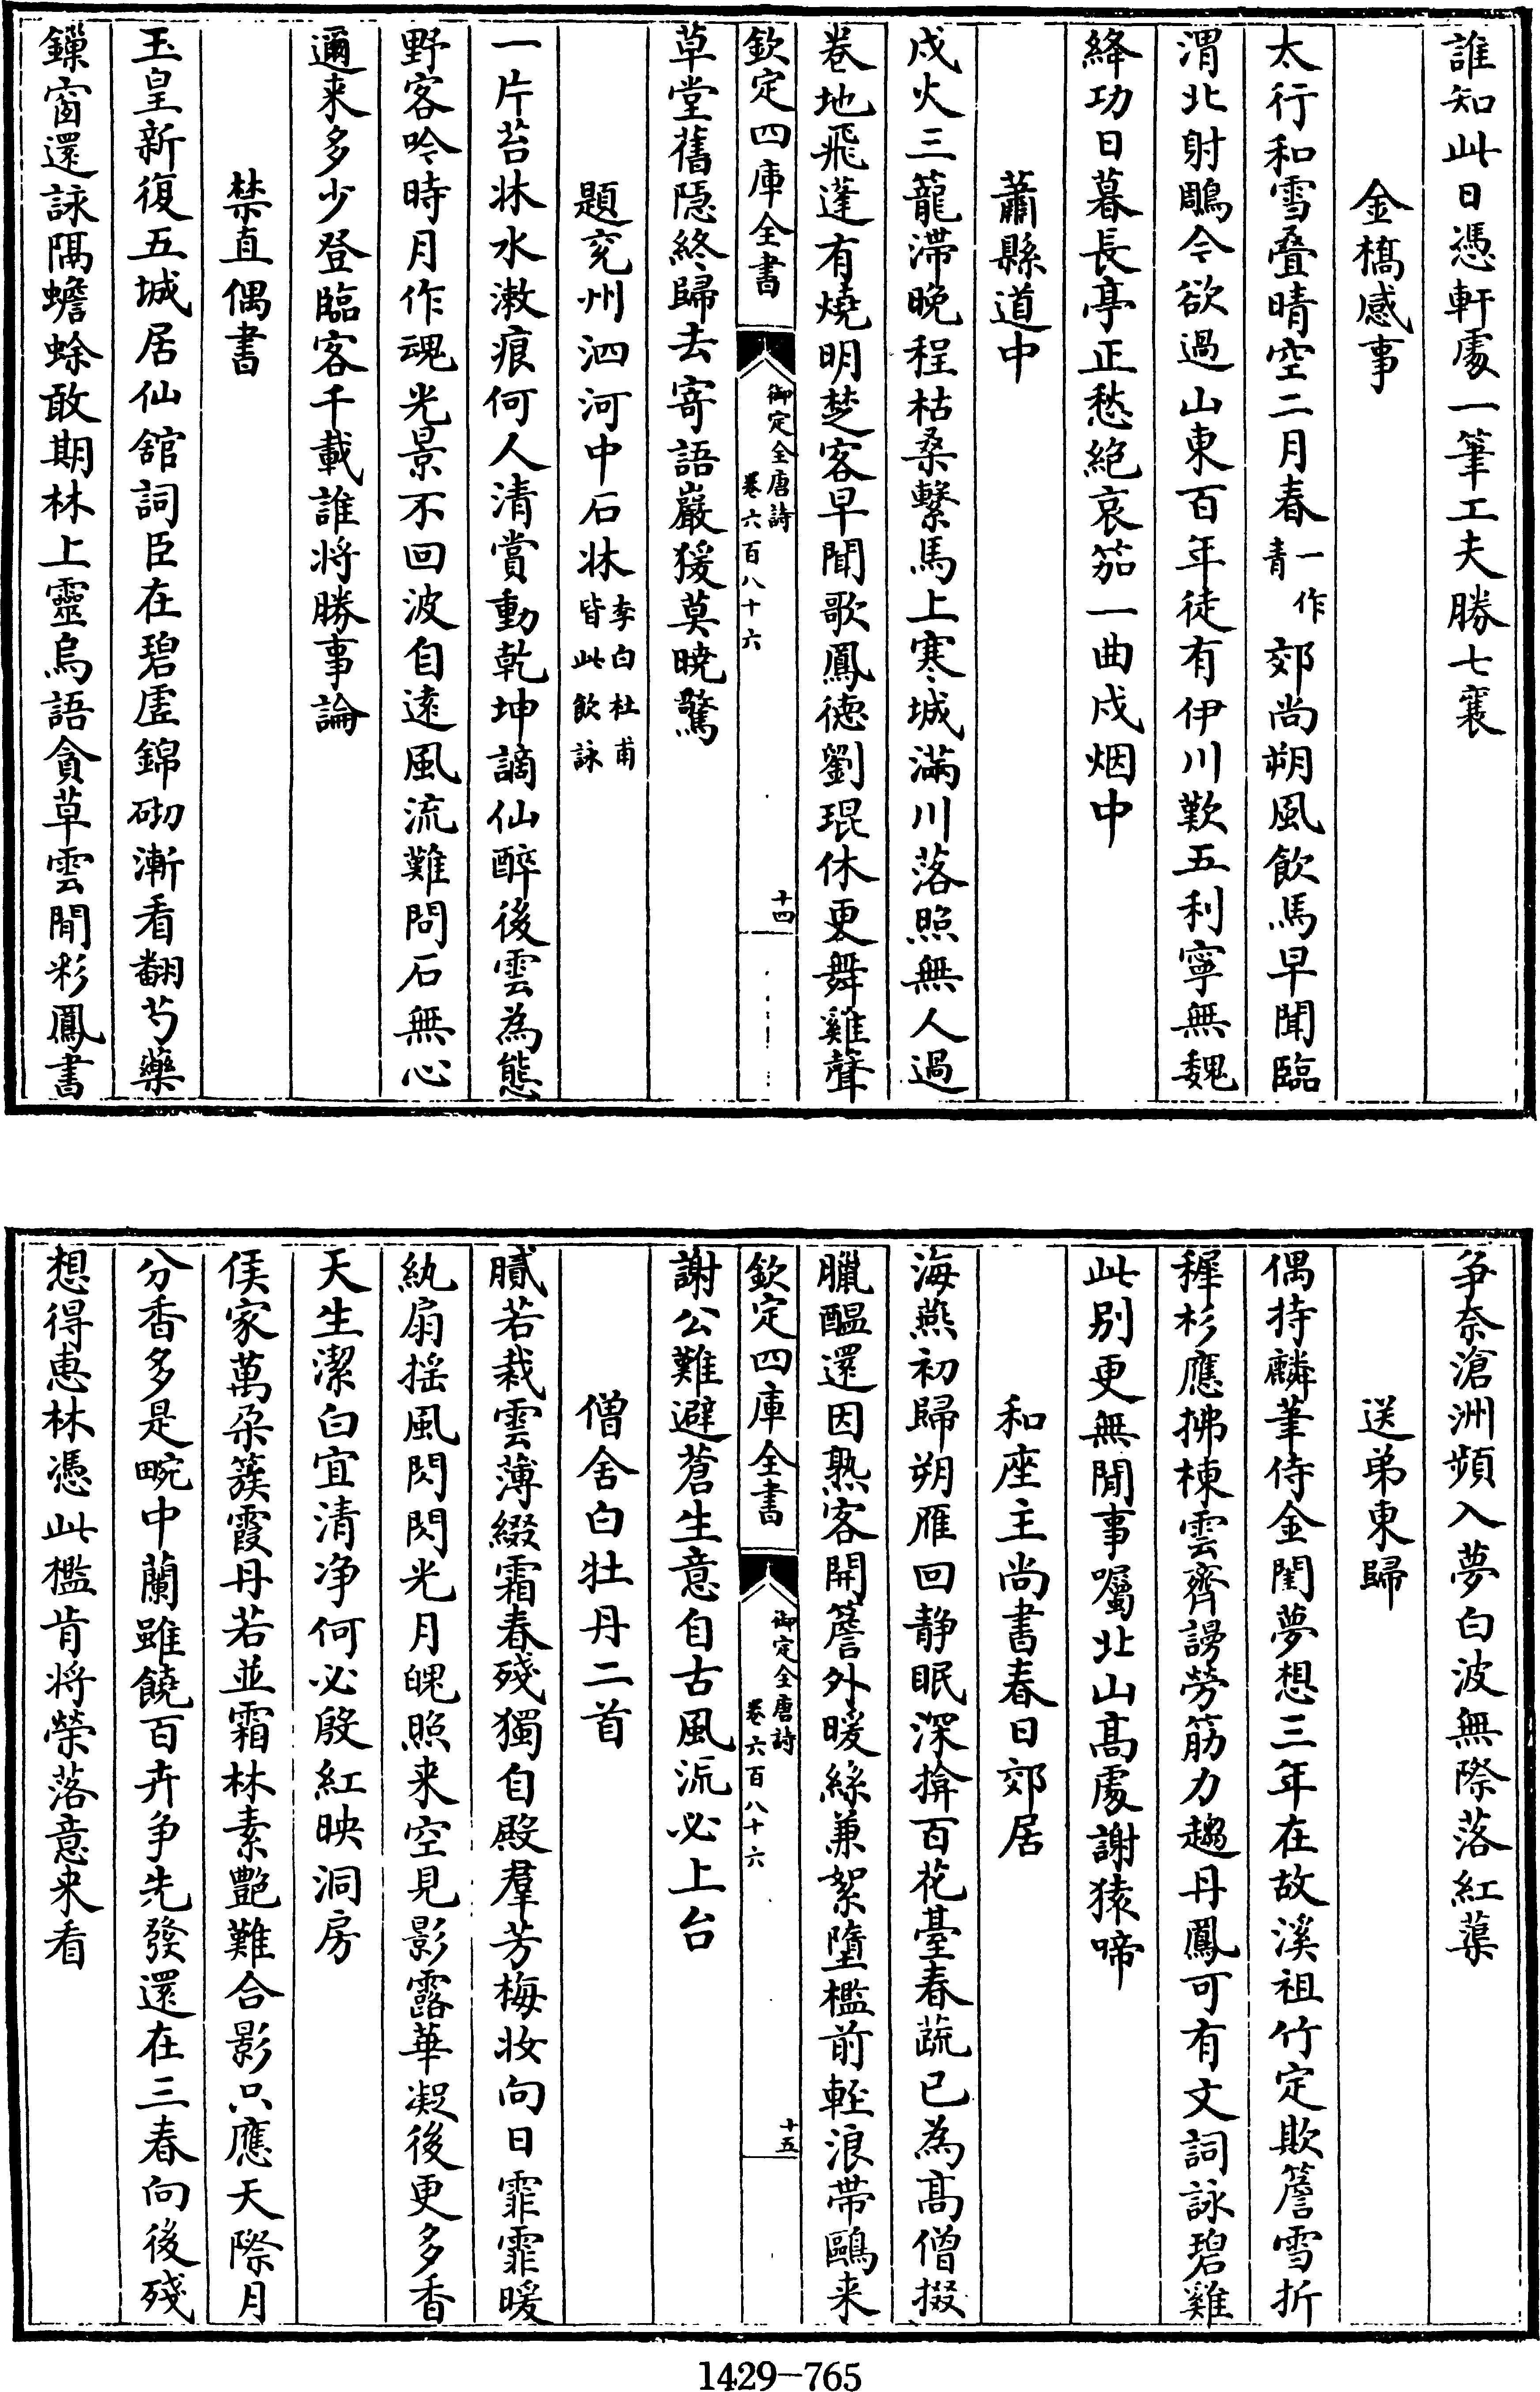 誰知此日憑軒處一筆工夫勝七襄
金橋感事
太行和雪叠晴空二月春一作青郊尚朔風飲馬早聞臨
渭北射鵰今欲過山東百年徒有伊川歎五利寧無魏
絳功日暮長亭正愁絕哀笳一曲戍烟中
蕭縣道中
戍火三籠滯晚程枯桑繫馬上寒城滿川落照無人過
卷地飛蓬有燒明楚客早聞歌鳳德劉琨休更舞雞聲
欽定四庫全書 御定全唐詩 卷六百八十六 十四
草堂舊隱終歸去寄語巖猨莫曉驚
題兖州泗河中石牀李白杜甫皆此飲詠
一片苔牀水漱痕何人清賞動乾坤謫仙醉後雲為態
野客吟時月作魂光景不回波自遠風流難問石無心
邇来多少登臨客千載誰将勝事論
禁直偶書
玉皇新復五城居仙舘詞臣在碧虛錦砌漸看翻芍藥
鏁窗還詠隔蟾蜍敢期林上靈烏語貪草雲間彩鳳書
争奈滄洲頻入夢白波無際落紅蕖
送弟東歸
偶持麟筆侍金閨夢想三年在故溪祖竹定欺簷雪折
穉杉應拂棟雲齊謗勞筋力趨丹鳳可有文詞詠碧雞
此别更無閒事囑北山髙處謝猿啼
和座主尚書春日郊居
海燕初歸朔雁回静眠深揜百花臺春蔬已為髙僧掇
臘醖還因熟客開簷外暖絲兼絮墮檻前輕浪帶鷗来
欽定四庫全書 御定全唐詩 卷六百八十六 十五
謝公難避蒼生意自古風流必上台
僧舍白牡丹二首
膩若裁雲薄綴霜春殘獨自殿羣芳梅妝向日霏霏暖
紈扇揺風閃閃光月魄照来空見影露華凝後更多香
天生潔白宜清净何必殷紅映洞房
侯家萬朶簇霞丹若並霜林素艷難合影只應天際月
分香多是畹中蘭雖饒百卉争先發還在三春向後殘
想得惠林憑此檻肯将榮落意来看
1429-765